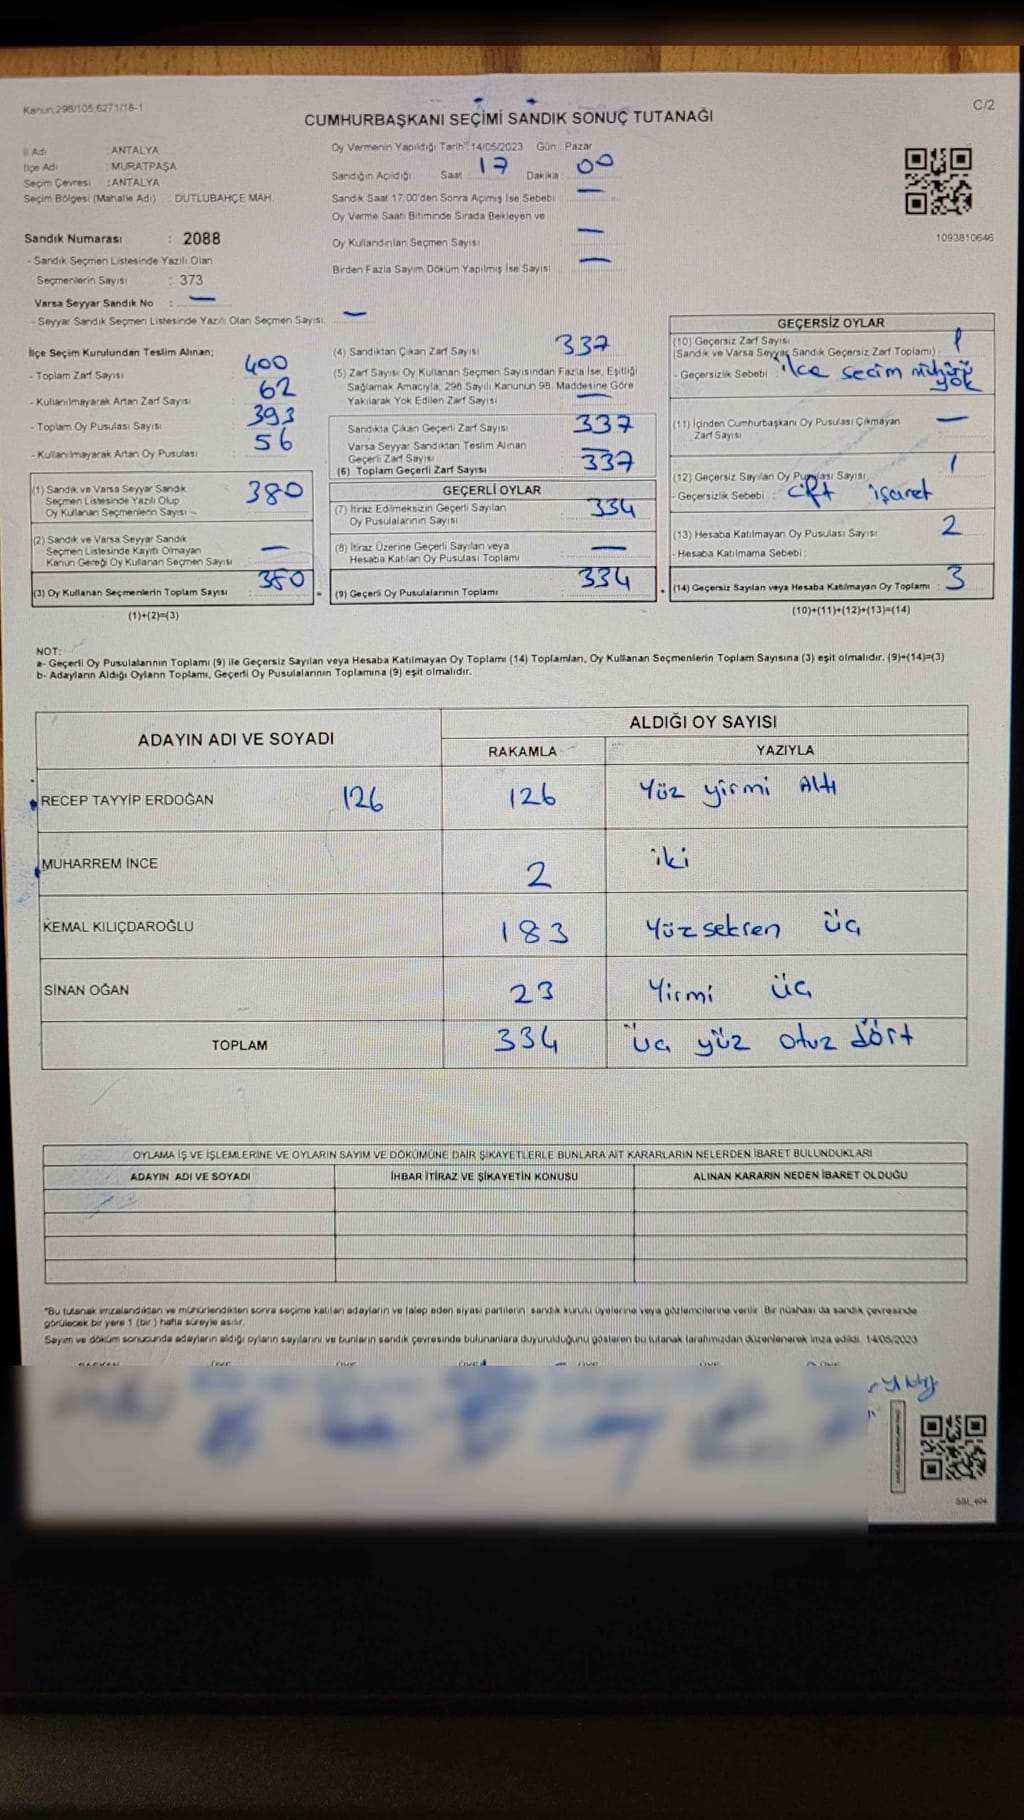 Kanun:298/105;6271/18-1
C/2
CUMHURBAŞKANI SEÇİMİ SANDIK SONUÇ TUTANAĞI
İl Adı : ANTALYA
İlçe Adı : MURATPAŞA
Seçim Çevresi : ANTALYA
Seçim Bölgesi (Mahalle Adı) : DUTLUBAHÇE MAH.
Sandık Numarası : 2088
- Sandık Seçmen Listesinde Yazılı Olan
Seçmenlerin Sayısı : 373
Varsa Seyyar Sandık No : —
- Seyyar Sandık Seçmen Listesinde Yazılı Olan Seçmen Sayısı: —
Oy Vermenin Yapıldığı Tarih : 14/05/2023 Gün : Pazar
Sandığın Açıldığı Saat : 17 Dakika : 00
Sandık Saat 17:00'den Sonra Açımış İse Sebebi : —
Oy Verme Saati Bitiminde Sırada Bekleyen ve
Oy Kullandırılan Seçmen Sayısı —
Birden Fazla Sayım Döküm Yapılmış İse Sayısı —
1093810646
İlçe Seçim Kurulundan Teslim Alınan;
- Toplam Zarf Sayısı 400
- Kullanılmayarak Artan Zarf Sayısı 62
- Toplam Oy Pusulası Sayısı 393
- Kullanılmayarak Artan Oy Pusulası 56
(1) Sandık ve Varsa Seyyar Sandık
Seçmen Listesinde Yazılı Olup
Oy Kullanan Seçmenlerin Sayısı 380
(2) Sandık ve Varsa Seyyar Sandık
Seçmen Listesinde Kayıtlı Olmayan
Kanun Gereği Oy Kullanan Seçmen Sayısı —
(3) Oy Kullanan Seçmenlerin Toplam Sayısı : 380
(1)+(2)=(3)
(4) Sandıktan Çıkan Zarf Sayısı 337
(5) Zarf Sayısı Oy Kullanan Seçmen Sayısından Fazla İse, Eşitliği
Sağlamak Amacıyla; 298 Sayılı Kanunun 98. Maddesine Göre
Yakılarak Yok Edilen Zarf Sayısı —
Sandıkta Çıkan Geçerli Zarf Sayısı 337
Varsa Seyyar Sandıktan Teslim Alınan
Geçerli Zarf Sayısı —
(6) Toplam Geçerli Zarf Sayısı 337
GEÇERLİ OYLAR
(7) İtiraz Edilmeksizin Geçerli Sayılan
Oy Pusulalarının Sayısı 334
(8) İtiraz Üzerine Geçerli Sayılan veya
Hesaba Katılan Oy Pusulası Toplamı —
(9) Geçerli Oy Pusulalarının Toplamı 334
GEÇERSİZ OYLAR
(10) Geçersiz Zarf Sayısı
(Sandık ve Varsa Seyyar Sandık Geçersiz Zarf Toplamı) : 1
- Geçersizlik Sebebi : ilçe seçim mührü
yok
(11) İçinden Cumhurbaşkanı Oy Pusulası Çıkmayan
Zarf Sayısı —
(12) Geçersiz Sayılan Oy Pusulası Sayısı 1
- Geçersizlik Sebebi : çift işaret
(13) Hesaba Katılmayan Oy Pusulası Sayısı 2
- Hesaba Katılmama Sebebi :
(14) Geçersiz Sayılan veya Hesaba Katılmayan Oy Toplamı : 3
(10)+(11)+(12)+(13)=(14)
NOT:
a- Geçerli Oy Pusulalarının Toplamı (9) ile Geçersiz Sayılan veya Hesaba Katılmayan Oy Toplamı (14) Toplamları, Oy Kullanan Seçmenlerin Toplam Sayısına (3) eşit olmalıdır. (9)+(14)=(3)
b- Adayların Aldığı Oyların Toplamı, Geçerli Oy Pusulalarının Toplamına (9) eşit olmalıdır.
ADAYIN ADI VE SOYADI ALDIĞI OY SAYISI
RAKAMLA YAZIYLA
RECEP TAYYİP ERDOĞAN 126 126 Yüz yirmi Altı
MUHARREM İNCE 2 iki
KEMAL KILIÇDAROĞLU 183 Yüz seksen üç
SİNAN OĞAN 23 Yirmi üç
TOPLAM 334 üç yüz otuz dört
OYLAMA İŞ VE İŞLEMLERİNE VE OYLARIN SAYIM VE DÖKÜMÜNE DAİR ŞİKAYETLERLE BUNLARA AİT KARARLARIN NELERDEN İBARET BULUNDUKLARI
ADAYIN ADI VE SOYADI İHBAR İTİRAZ VE ŞİKAYETİN KONUSU ALINAN KARARIN NEDEN İBARET OLDUĞU
*Bu tutanak imzalandıktan ve mühürlendikten sonra seçime katılan adayların ve talep eden siyasi partilerin sandık kurulu üyelerine veya gözlemcilerine verilir. Bir nüshası da sandık çevresinde
görülecek bir yere 1 (bir) hafta süreyle asılır.
Sayım ve döküm sonucunda adayların aldığı oyların sayılarını ve bunların sandık çevresinde bulunanlara duyurulduğunu gösteren bu tutanak tarafımızdan düzenlenerek imza edildi. 14/05/2023